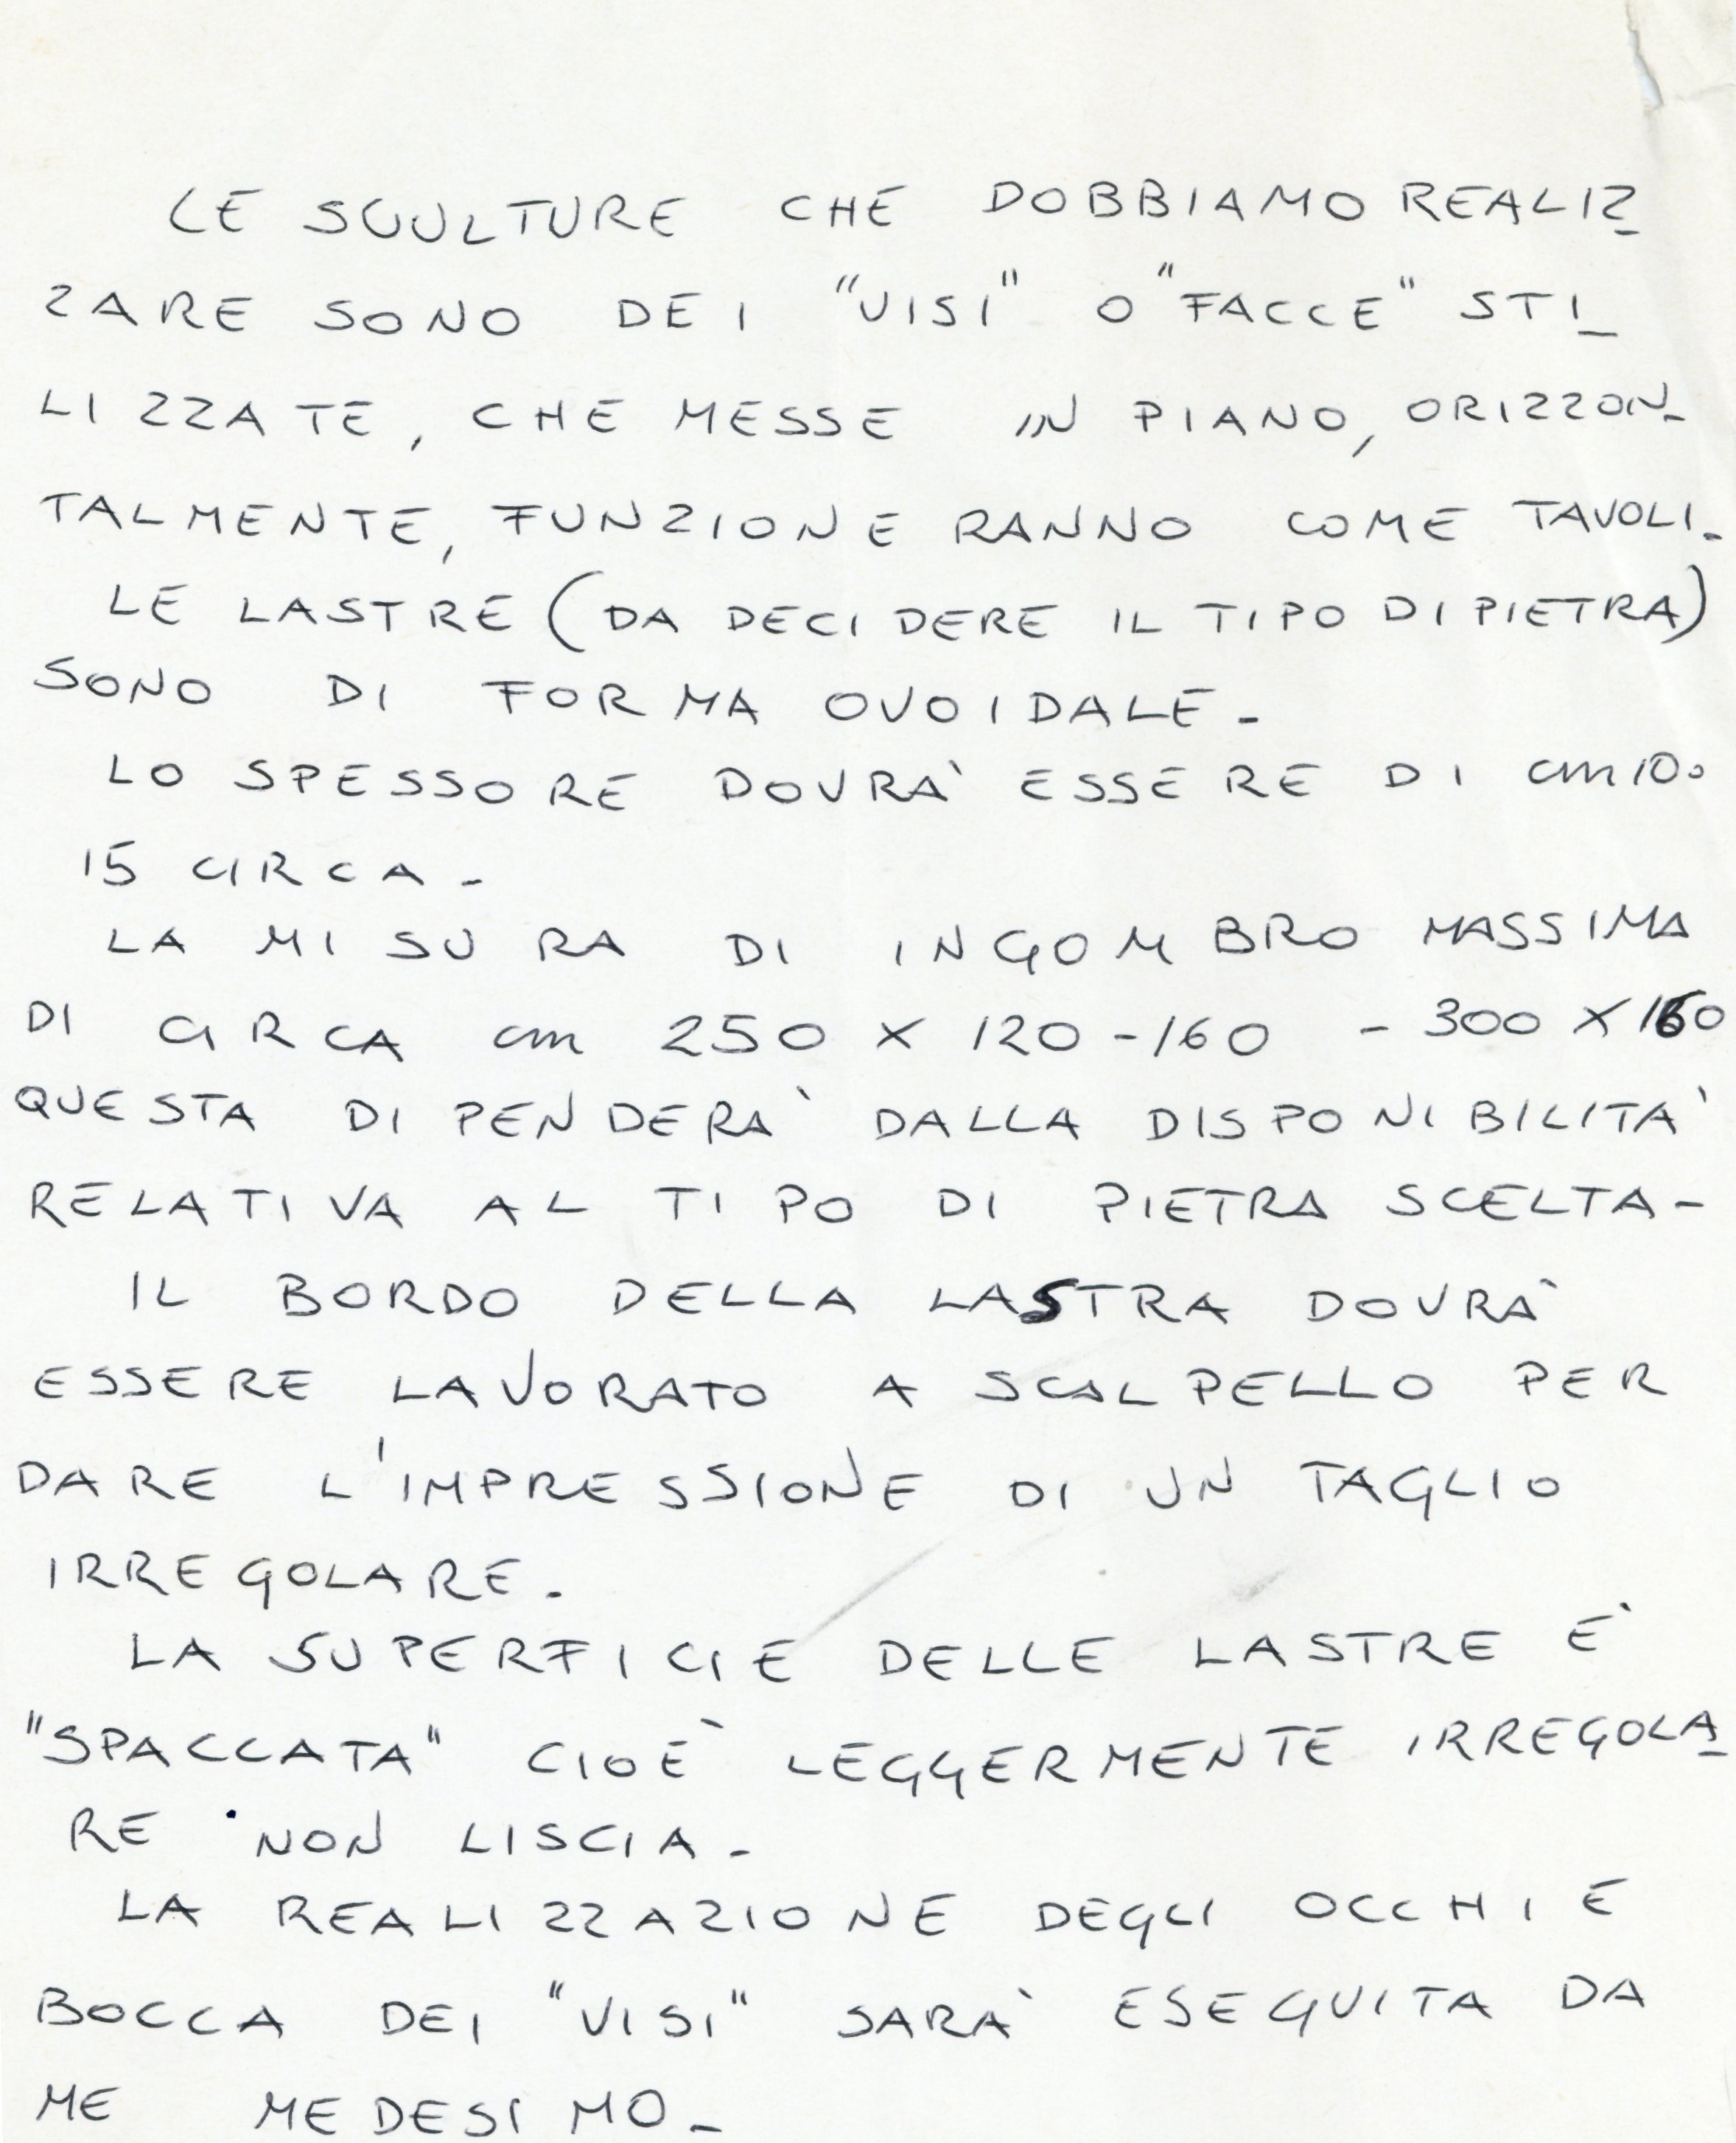 LE SCULTURE CHE DOBBIAMO REALIZ
ZARE SONO DEI "VISI" O "FACCE" STI_
LIZZATE, CHE MESSE IN PIANO, ORIZZON_
TALMENTE, FUNZIONERANNO COME TAVOLI.
LE LASTRE (DA DECIDERE IL TIPO DI PIETRA)
SONO DI FORMA OVOIDALE -
LO SPESSORE DOVRÀ ESSERE DI cm 10 o
15 CIRCA -
LA MISURA DI INGOMBRO MASSIMA
DI CIRCA cm 250 X 120 - 160 - 300 X 160
QUESTA DIPENDERÀ DALLA DISPONIBILITÀ
RELATIVA AL TIPO DI PIETRA SCELTA -
IL BORDO DELLA LASTRA DOVRÀ
ESSERE LAVORATO A SCALPELLO PER
DARE L'IMPRESSIONE DI UN TAGLIO
IRREGOLARE.
LA SUPERFICIE DELLE LASTRE È
"SPACCATA" CIOÈ LEGGERMENTE IRREGOLA
RE NON LISCIA -
LA REALIZZAZIONE DEGLI OCCHI E
BOCCA DEI "VISI" SARÀ ESEGUITA DA
ME MEDESIMO -